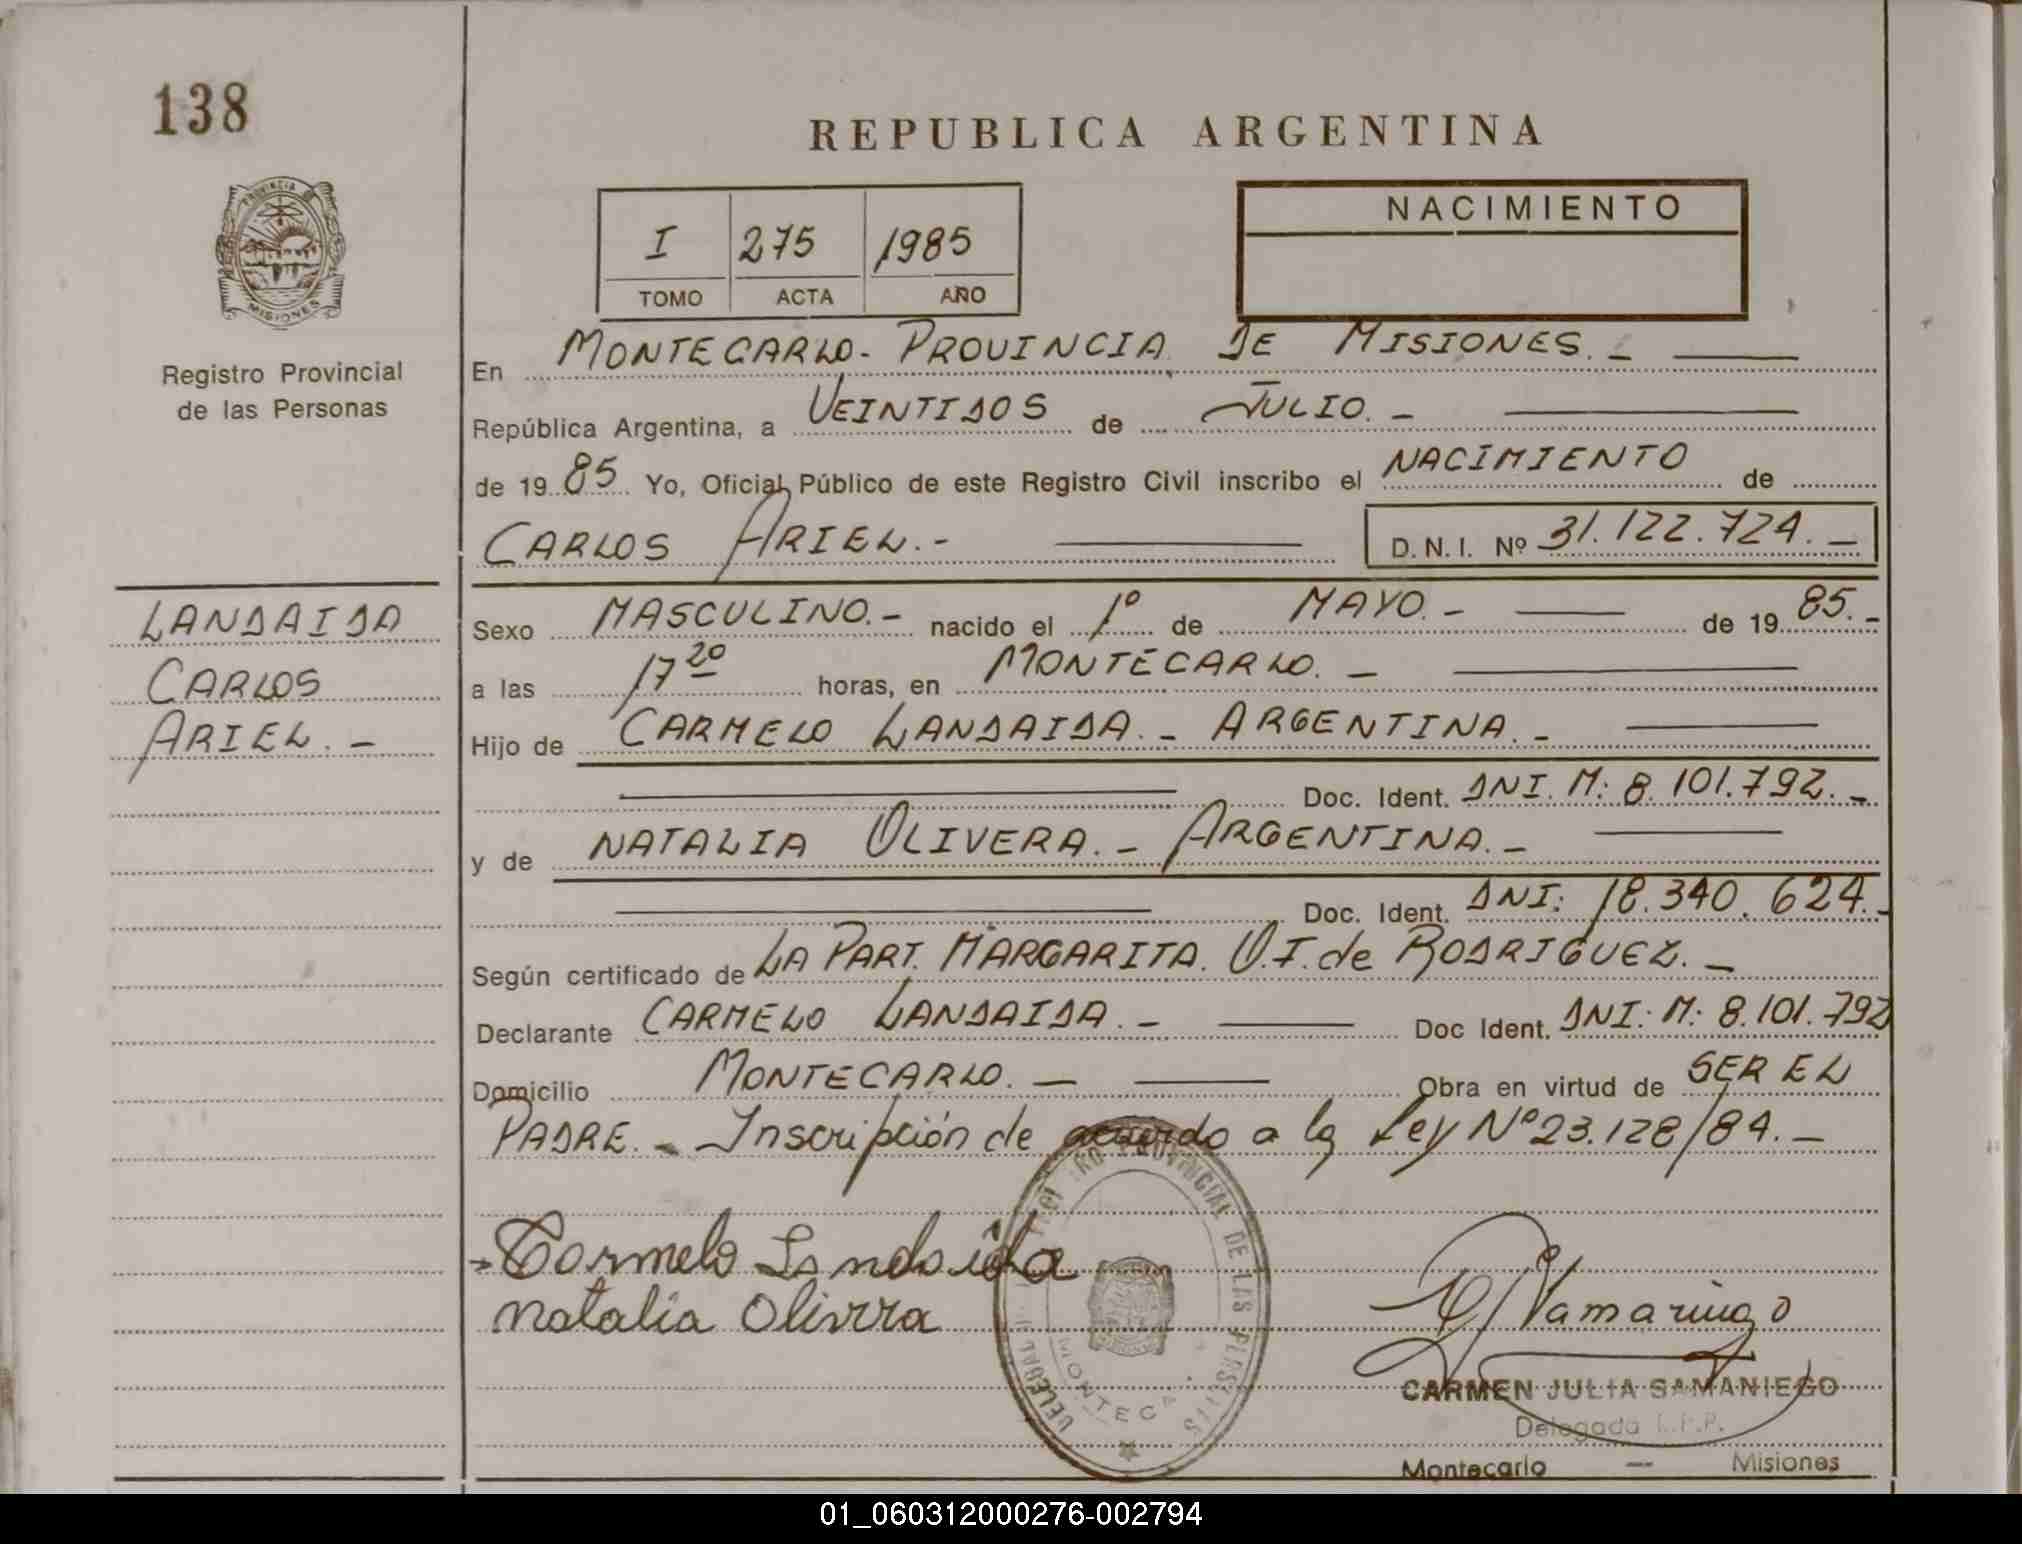 138
REPUBLICA ARGENTINA
PROVINCIA DE
MISIONES
Registro Provincial
de las Personas
I 275 1985
TOMO ACTA AÑO
NACIMIENTO
En MONTECARLO - PROVINCIA DE MISIONES. -
República Argentina, a VEINTIDOS de JULIO. -
de 19 85 Yo, Oficial Público de este Registro Civil inscribo el NACIMIENTO de
CARLOS ARIEL. - D.N.I. Nº 31.122.724. -
LANDAIDA
CARLOS
ARIEL. -
Sexo MASCULINO. - nacido el 1º de MAYO. - de 19 85. -
a las 17 20 horas, en MONTECARLO. -
Hijo de CARMELO LANDAIDA. - ARGENTINA. -
Doc. Ident. DNI. M: 8.101.792. -
y de NATALIA OLIVERA. - ARGENTINA. -
Doc. Ident. DNI: 18.340.624. -
Según certificado de LA PART. MARGARITA. V.I. de RODRIGUEZ. -
Declarante CARMELO LANDAIDA. - Doc Ident. DNI: M: 8.101.792
Domicilio MONTECARLO. - Obra en virtud de SER EL
PADRE. - Inscripción de acuerdo a la Ley Nº 23.128/84. -
Carmelo Landaida
Natalia Olivera
PROVINCIAL DE LAS
MONTECA
CARMEN JULIA SAMANIEGO
Delegada
Montecarlo - Misiones
01_060312000276-002794